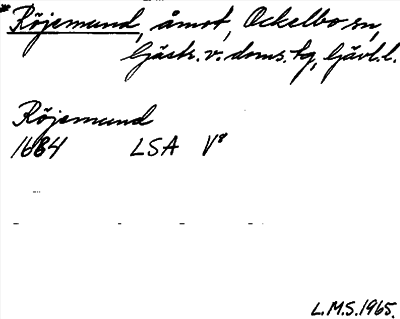 * Röjemund, åmot, Ockelbo sn,
Gästr. v. doms. tg, Gävl. l.
Röjemund
1684 LSA V⁸
L.M.S. 1965.